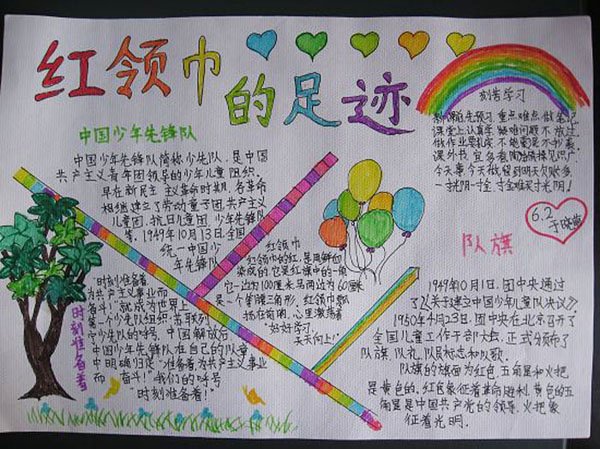 红领巾的足迹
中国少年先锋队
中国少年先锋队简称少先队,是中国
共产主义青年团领导的少年儿童组织.
早在新民主主义革命时期,各革命
相继建立了劳动童子团,共产主义
儿童团,抗日儿童团,少年先锋队
等,1949年10月13日全国
统一中国少
年先锋队
刻苦学习
新课前先预习,重点难点做笔记
课堂上认真学,疑难问题不放过
一寸光阴一寸金,寸金难买寸光阴!
6.2
红领巾
红领巾的红色,是用鲜血
染成的,它是红旗中的一角
它一边为100厘米,另两边为60厘米
是一个等腰三角形,红领巾飘
扬在前胸,心里激荡着
"好好学习.
天天向上!"
时刻准备着
时刻准备着,
为共产主义事业而
奋斗!就成为世界上
第一个少先队组织:苏联列
宁少先队的呼号,中国解放后
中国少年先锋队在自己的队章
中明确归定"准备着,为共产主义事业
而奋斗!"我们的呼号
"时刻准备着!"
队旗
1949年10月1日,团中央通过
了《关于建立中国少年儿童队决议》
1950年4月23日,团中央在北京召开了
全国儿童工作干部大会,正式颁布了
队旗,队礼,队员标志和队歌.
队旗的旗面为红色,五角星和火把
是黄色的,红色象征着革命胜利,黄色的五
角星是中国共产党的领导,火把象
征着光明.